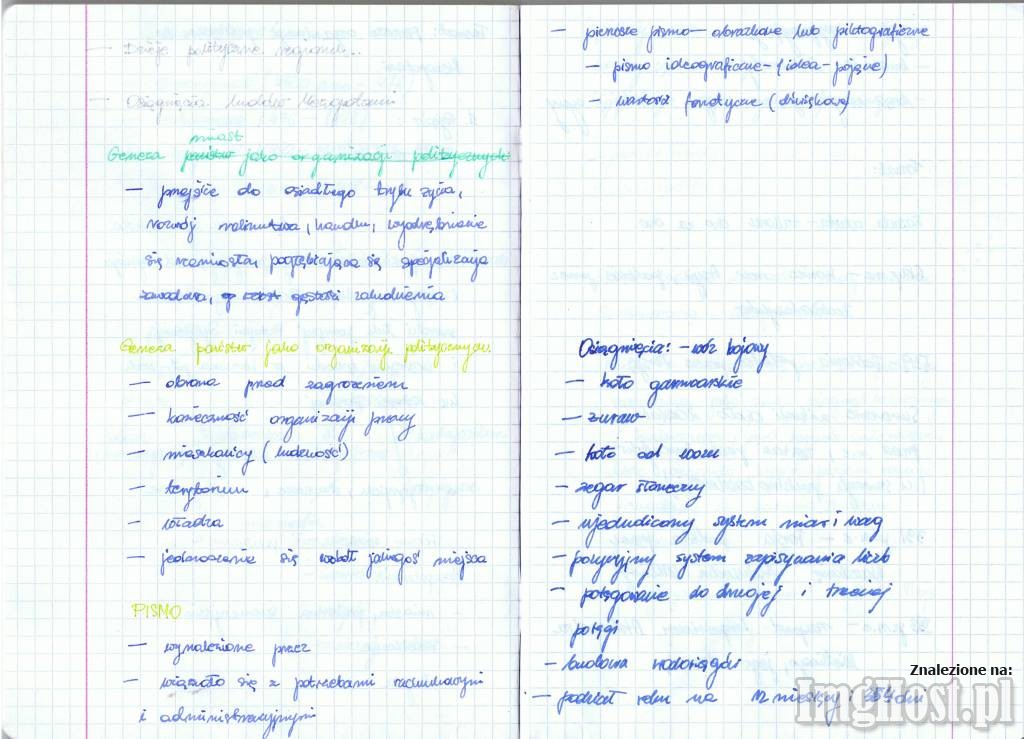 — Dzieje polityczne regionu...
— Osiągnięcia ludów Mezopotamii
miast
Geneza państw jako organizacji politycznych
— przejście do osiadłego trybu życia,
rozwój rolnictwa, handlu, wyodrębnianie
się rzemiosła, pogłębiająca się specjalizacja
zawodowa, gęstość zaludnienia
Geneza państw jako organizacji politycznych.
— obrona przed zagrożeniem
— konieczność organizacji pracy
— mieszkańcy (ludność)
— terytorium
— władza
— jednoczenie się wokół jakiegoś miejsca
PISMO
— wynalezione przez
— wiązało się z potrzebami rachunkowymi
i administracyjnymi
— pierwsze pismo — obrazkowe lub piktograficzne
— pismo ideograficzne - (idea - pojęcie)
— wartość fonetyczne (dźwiękowe)
Osiągnięcia: - wóz bojowy
— koło garncarskie
— żuraw
— koło od wozu
— zegar słoneczny
— ujednolicony system miar i wag
— pozycyjny system zapisywania liczb
— potęgowanie do drugiej i trzeciej
potęgi
— budowa wodociągów
— podział roku na 12 miesięcy i 354 dni
Znalezione na:
ImgHost.pl